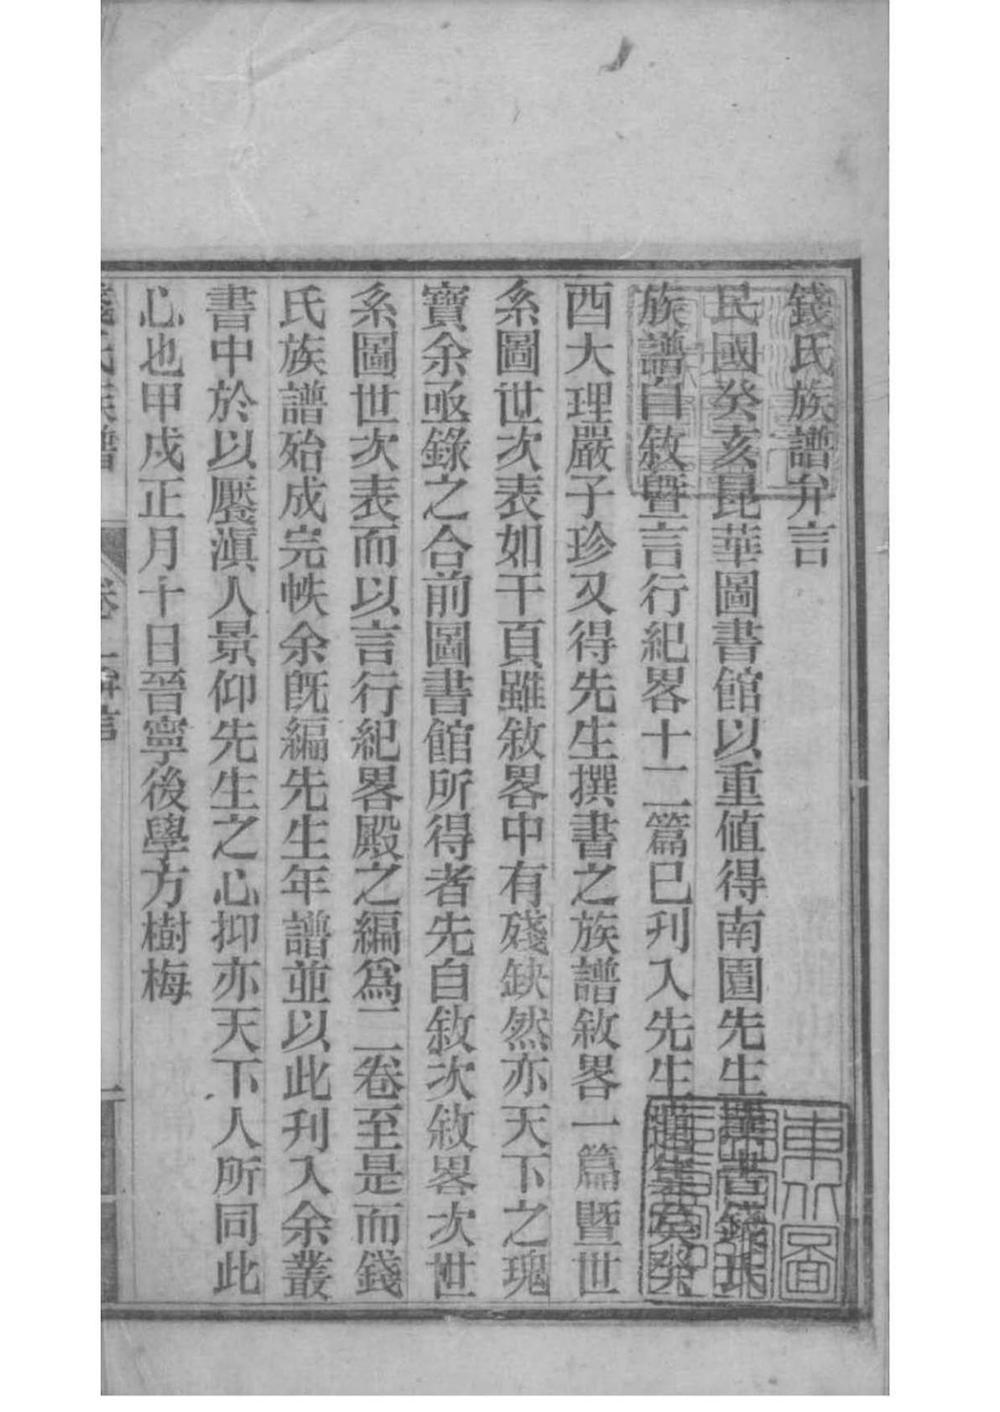 錢氏族譜弁言
民國癸亥昆華圖書館以重值得南園先生撰書錢氏
族譜自敘暨言行紀畧十二篇已刋入先生遺集癸
酉大理嚴子珍又得先生撰書之族譜敘畧一篇暨世
系圖世次表如干頁雖敘畧中有殘缺然亦天下之瑰
寶余亟錄之合前圖書館所得者先自敘次敘畧次世
系圖世次表而以言行紀畧殿之編爲二卷至是而錢
氏族譜殆成完帙余旣編先生年譜並以此刋入余叢
書中於以饜滇人景仰先生之心抑亦天下人所同此
心也甲戍正月十日晉寧後學方樹梅
錢氏族譜 卷一弁言 一